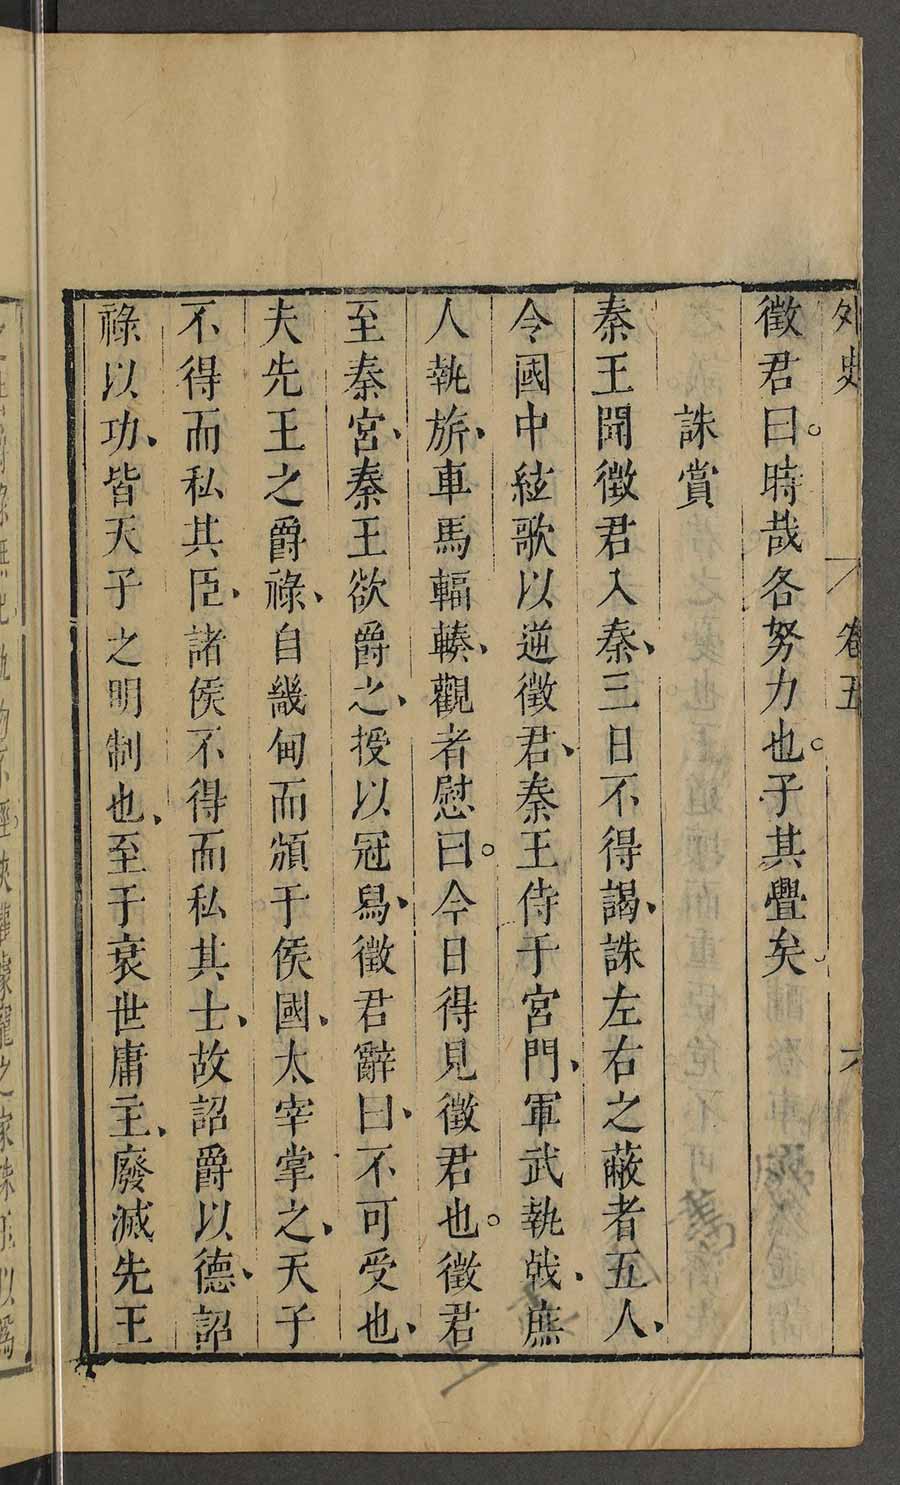 外史 卷五 六
徵君曰。時哉各努力也。子其疊矣
誅賞
秦王聞徵君入秦、三日不得謁、誅左右之蔽者五人、
令國中絃歌以逆徵君、秦王侍于宮門、軍武執戟、庶
人執旂、車馬輻輳、觀者慰曰。今日得見徵君也。徵君
至秦宮、秦王欲爵之、授以冠舄、徵君辭曰、不可受也、
夫先王之爵祿、自畿甸而頒于侯國、太宰掌之、天子
不得而私其臣、諸侯不得而私其士、故詔爵以德、詔
祿以功、皆天子之明制也、至于衰世庸主、廢滅先王